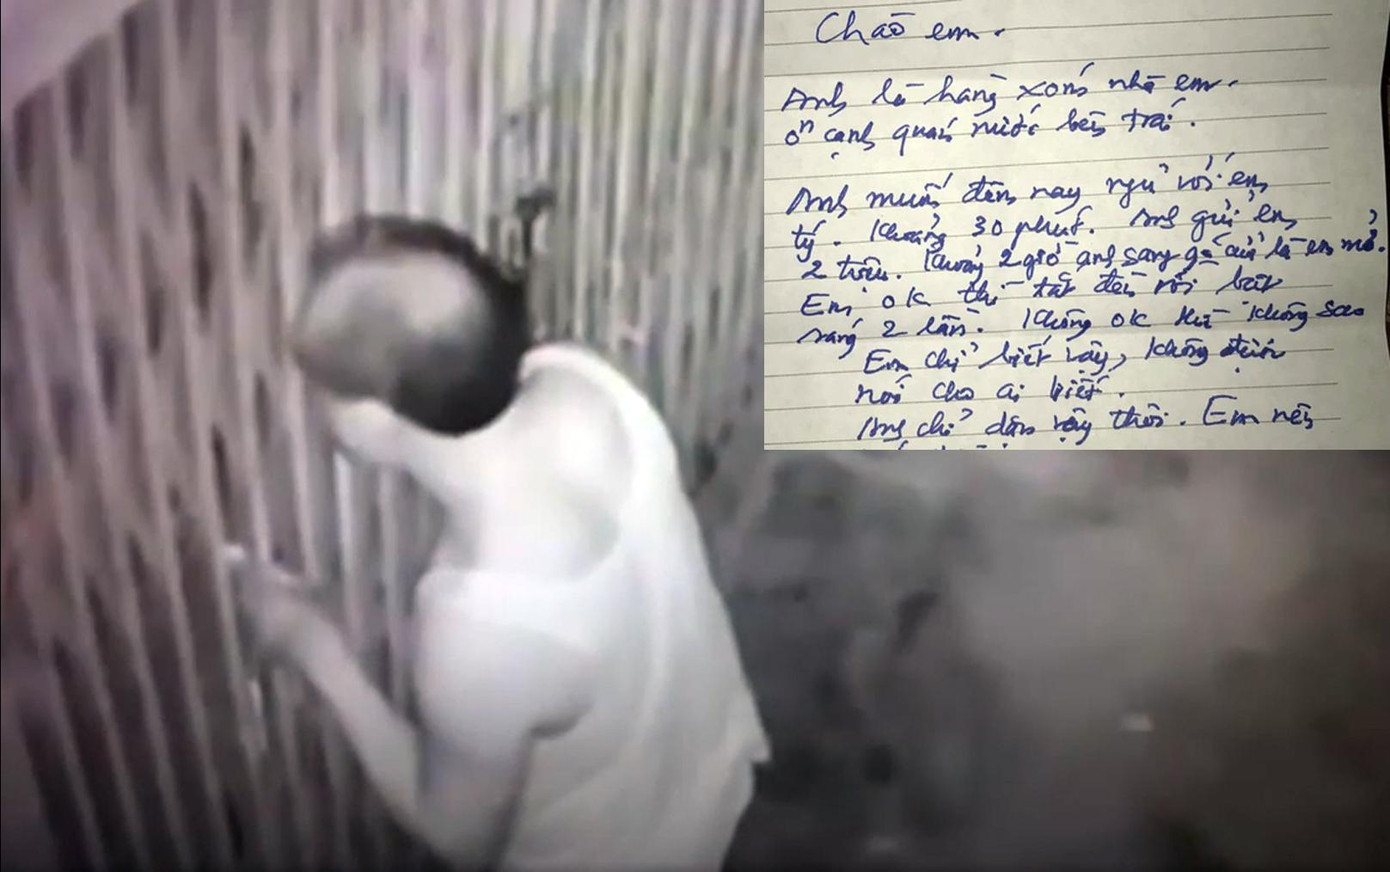 Chào em.
Anh là hàng xóm nhà em.
ở cạnh quán nước bên trái.
Anh muốn đêm nay ngủ với em
tý. Khoảng 30 phút. Anh gửi em
2 triệu. Khoảng 2 giờ anh sang gõ cửa là em mở.
Em ok thì tắt đèn rồi bật
sáng 2 lần. Không ok thì không sao
Em chỉ biết vậy, không được
nói cho ai biết.
Anh chỉ dặn vậy thôi. Em nếu